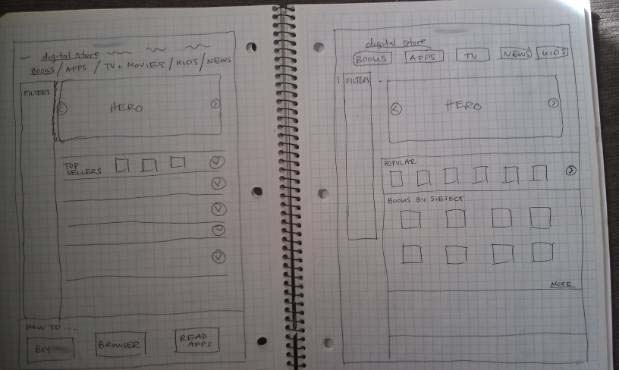 digital store
BOOKS / APPS / TV + MOVIES / KIDS / NEWS
FILTERS
HERO
TOP SELLERS
HOW TO ...
BUY
BROWSER
READ APPS
digital store
BOOKS APPS TV NEWS KIDS
FILTERS
HERO
POPULAR
BOOKS BY SUBJECT
MORE